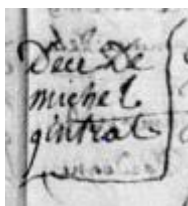 Deces De
michel
gintrat